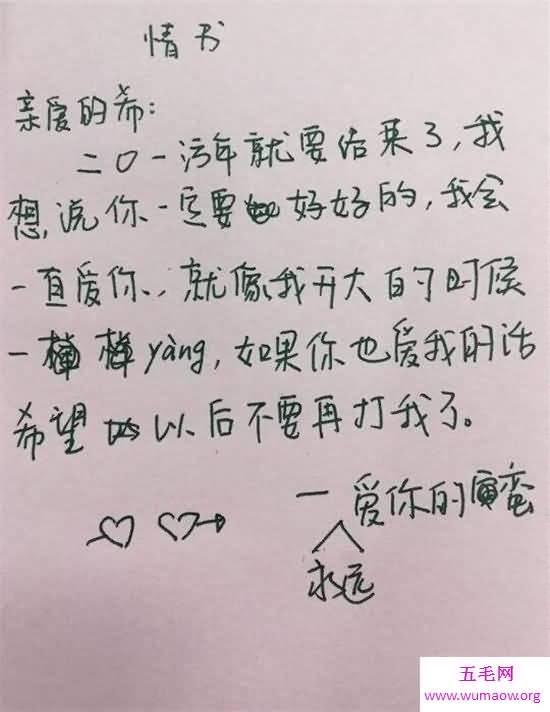 情书
亲爱的希:
二〇一污年就要结束了,我
想说你一定要好好的,我会
一直爱你,就像我开大的时候
一yàng,如果你也爱我的话
希望以后不要再打我了。
一爱你的蛮
永远
五毛网
www.wumaow.org